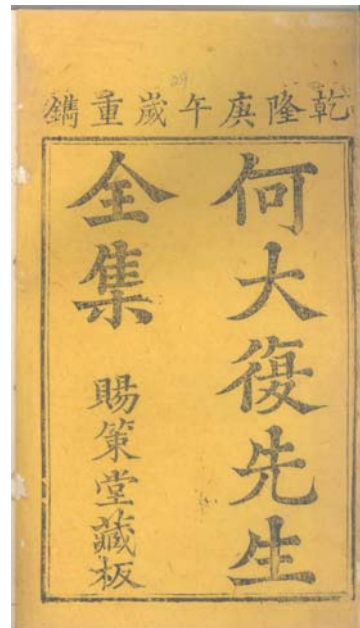 乾隆庚午歲重鐫
何大復先生
全集
賜策堂藏板